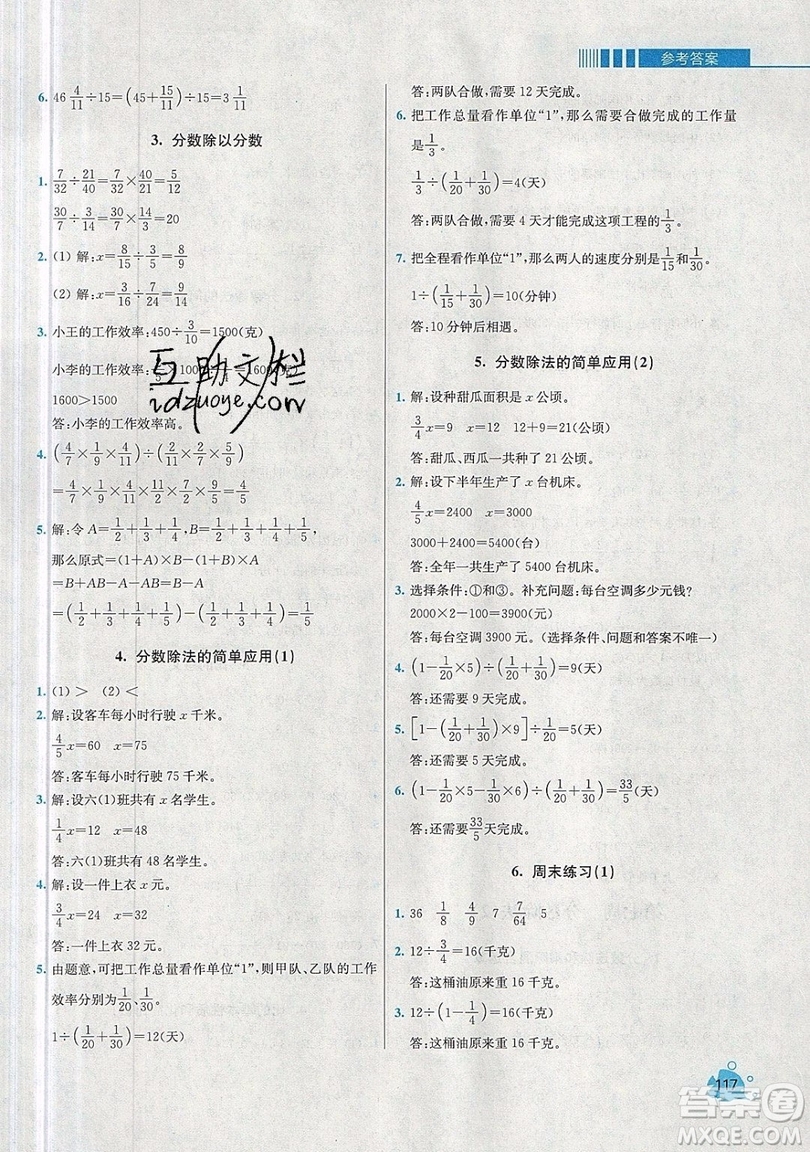 参考答案
6. 46 4/11÷15=(45+15/11)÷15=3 1/11
3. 分数除以分数
1. 7/32÷21/40=7/32×40/21=5/12
30/7÷3/14=30/7×14/3=20
2. (1) 解:x=8/15÷3/5=8/9
(2) 解:x=3/16÷7/24=9/14
3. 小王的工作效率:450÷3/10=1500(克)
小李的工作效率:
1600>1500
答:小李的工作效率高。
4. (4/7×1/9×4/11)÷(2/11×2/7×5/9)
=4/7×1/9×4/11×11/2×7/2×9/5=4/5
5. 解:令 A=1/2+1/3+1/4,B=1/2+1/3+1/4+1/5,
那么原式=(1+A)×B-(1+B)×A
=B+AB-A-AB=B-A
=(1/2+1/3+1/4+1/5)-(1/2+1/3+1/4)=1/5
4. 分数除法的简单应用(1)
1. (1) > (2) <
2. 解:设客车每小时行驶 x 千米。
4/5x=60 x=75
答:客车每小时行驶 75 千米。
3. 解:设六(1)班共有 x 名学生。
1/4x=12 x=48
答:六(1)班共有 48 名学生。
4. 解:设一件上衣 x 元。
3/4x=24 x=32
答:一件上衣 32 元。
5. 由题意,可把工作总量看作单位“1”,则甲队、乙队的工作
效率分别为1/20、1/30。
1÷(1/20+1/30)=12(天)
答:两队合做,需要 12 天完成。
6. 把工作总量看作单位“1”,那么需要合做完成的工作量
是1/3。
1/3÷(1/20+1/30)=4(天)
答:两队合做,需要 4 天才能完成这项工程的1/3。
7. 把全程看作单位“1”,那么两人的速度分别是1/15和1/30。
1÷(1/15+1/30)=10(分钟)
答:10 分钟后相遇。
5. 分数除法的简单应用(2)
1. 解:设种甜瓜面积是 x 公顷。
3/4x=9 x=12 12+9=21(公顷)
答:甜瓜、西瓜一共种了 21 公顷。
2. 解:设下半年生产了 x 台机床。
4/5x=2400 x=3000
3000+2400=5400(台)
答:全年一共生产了 5400 台机床。
3. 选择条件:①和③。补充问题:每台空调多少元钱?
2000×2-100=3900(元)
答:每台空调 3900 元。(选择条件、问题和答案不唯一)
4. (1-1/20×5)÷(1/20+1/30)=9(天)
答:还需要 9 天完成。
5. [1-(1/20+1/30)×9]÷1/20=5(天)
答:还需要 5 天完成。
6. (1-1/20×5-1/30×6)÷(1/20+1/30)=33/5(天)
答:还需要33/5天完成。
6. 周末练习(1)
1. 36 1/8 4/9 7 7/64 5
2. 12÷3/4=16(千克)
答:这桶油原来重 16 千克。
3. 12÷(1-1/4)=16(千克)
答:这桶油原来重 16 千克。
117
互助文档
idzuoye.com
答案圈
MXQE.COM